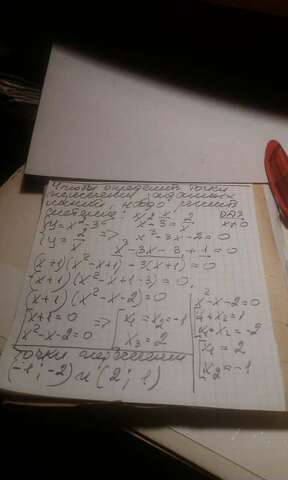 Чтобы определить точки
пересечения заданных
линий, надо решить
систему:
{y=x²-3 => x²-3=2/x ОДЗ x≠0
{y=2/x x³-3x-2=0
x³-3x-3+1=0
(x+1)(x²-x+1)-3(x+1)=0
(x+1)(x²-x+1-3)=0
(x+1)(x²-x-2)=0
[x+1=0
[x²-x-2=0 => [x₁=x₂=-1
[x₃=2
x²-x-2=0
x₁+x₂=1
x₁*x₂=-2
[x₁=2
[x₂=-1
точки пересечения
(-1;-2) и (2;1)